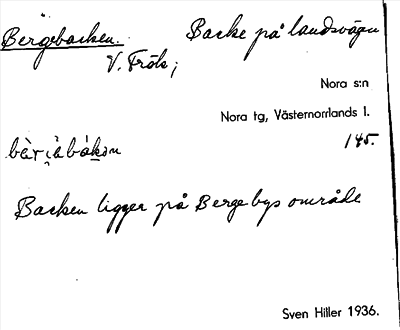 Bergebacken. Backe på landsvägen
V. Fröle;
Nora s:n
Nora tg, Västernorrlands l.
145.
Backen ligger på Berge bys område
Sven Hiller 1936.